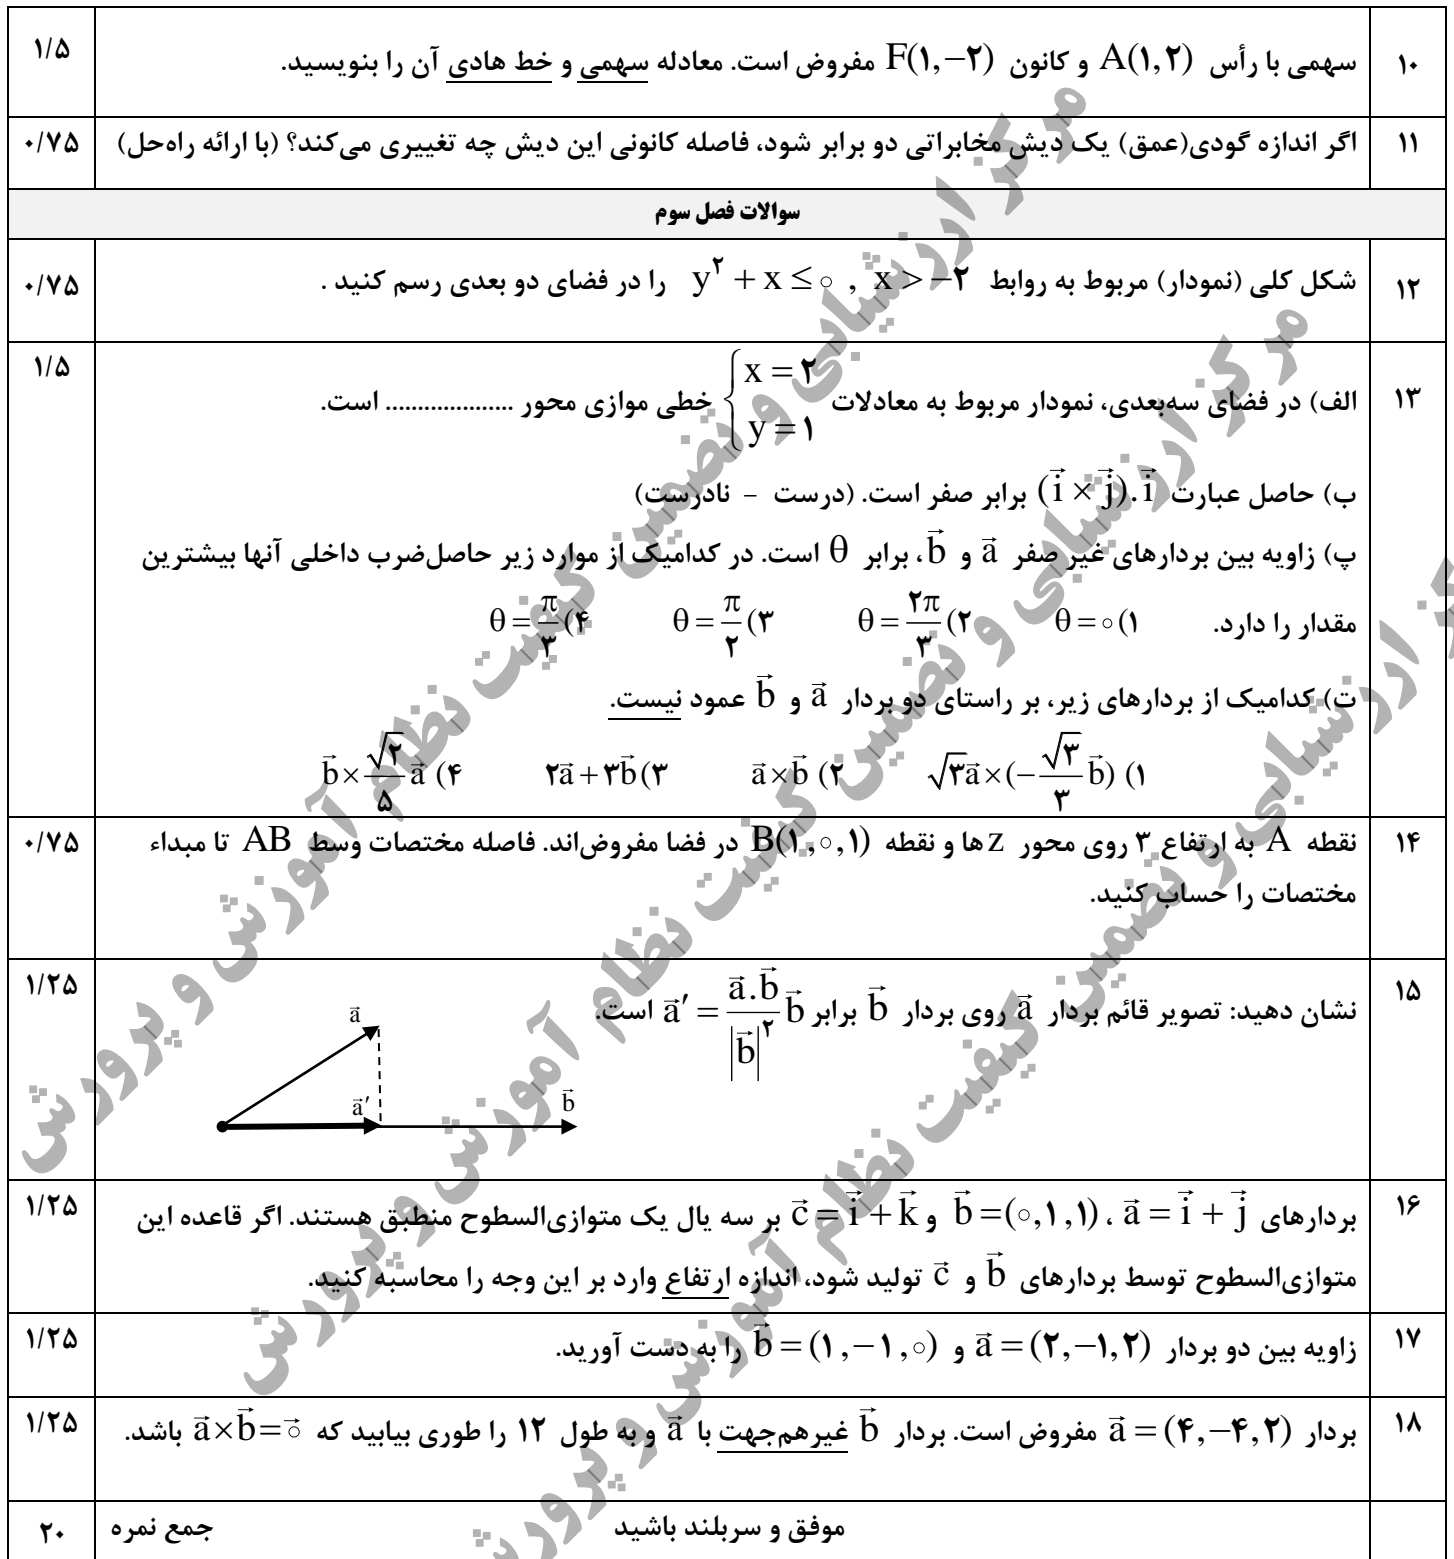 ۱۰ سهمی با رأس A(۱,۲) و کانون F(۱,−۲) مفروض است. معادله سهمی و خط هادی آن را بنویسید. ۱/۵
۱۱ اگر اندازه گودی(عمق) یک دیش مخابراتی دو برابر شود، فاصله کانونی این دیش چه تغییری می‌کند؟ (با ارائه راه‌حل) ۰/۷۵
سوالات فصل سوم
۱۲ شکل کلی (نمودار) مربوط به روابط y² + x ≤ ۰ , x > −۲ را در فضای دو بعدی رسم کنید . ۰/۷۵
۱۳ الف) در فضای سه‌بعدی، نمودار مربوط به معادلات {x = ۲, y = ۱ خطی موازی محور .................... است. ۱/۵
ب) حاصل عبارت (i⃗ × j⃗).i⃗ برابر صفر است. (درست - نادرست)
پ) زاویه بین بردارهای غیر صفر a⃗ و b⃗، برابر θ است. در کدامیک از موارد زیر حاصل‌ضرب داخلی آنها بیشترین
مقدار را دارد. ۱) θ = ۰ ۲) θ = ۲π/۳ ۳) θ = π/۲ ۴) θ = π/۳
ت) کدامیک از بردارهای زیر، بر راستای دو بردار a⃗ و b⃗ عمود نیست.
۱) √۳a⃗ × (−√۳/۳ b⃗) ۲) a⃗ × b⃗ ۳) ۲a⃗ + ۳b⃗ ۴) b⃗ × √۲/۵ a⃗
۱۴ نقطه A به ارتفاع ۳ روی محور z ها و نقطه B(۱,۰,۱) در فضا مفروض‌اند. فاصله مختصات وسط AB تا مبداء ۰/۷۵
مختصات را حساب کنید.
۱۵ نشان دهید: تصویر قائم بردار a⃗ روی بردار b⃗ برابر a⃗′ = (a⃗.b⃗ / |b⃗|²) b⃗ است. ۱/۲۵
a⃗
a⃗′
b⃗
۱۶ بردارهای a⃗ = i⃗ + j⃗ ، b⃗ = (۰,۱,۱) و c⃗ = i⃗ + k⃗ بر سه یال یک متوازی‌السطوح منطبق هستند. اگر قاعده این ۱/۲۵
متوازی‌السطوح توسط بردارهای b⃗ و c⃗ تولید شود، اندازه ارتفاع وارد بر این وجه را محاسبه کنید.
۱۷ زاویه بین دو بردار a⃗ = (۲,−۱,۲) و b⃗ = (۱,−۱,۰) را به دست آورید. ۱/۲۵
۱۸ بردار a⃗ = (۴,−۴,۲) مفروض است. بردار b⃗ غیرهم‌جهت با a⃗ و به طول ۱۲ را طوری بیابید که a⃗ × b⃗ = ۰⃗ باشد. ۱/۲۵
موفق و سربلند باشید جمع نمره ۲۰
مرکز ارزشیابی و تضمین کیفیت نظام آموزش و پرورش
مرکز ارزشیابی و تضمین کیفیت نظام آموزش و پرورش
مرکز ارزشیابی و تضمین کیفیت نظام آموزش و پرورش